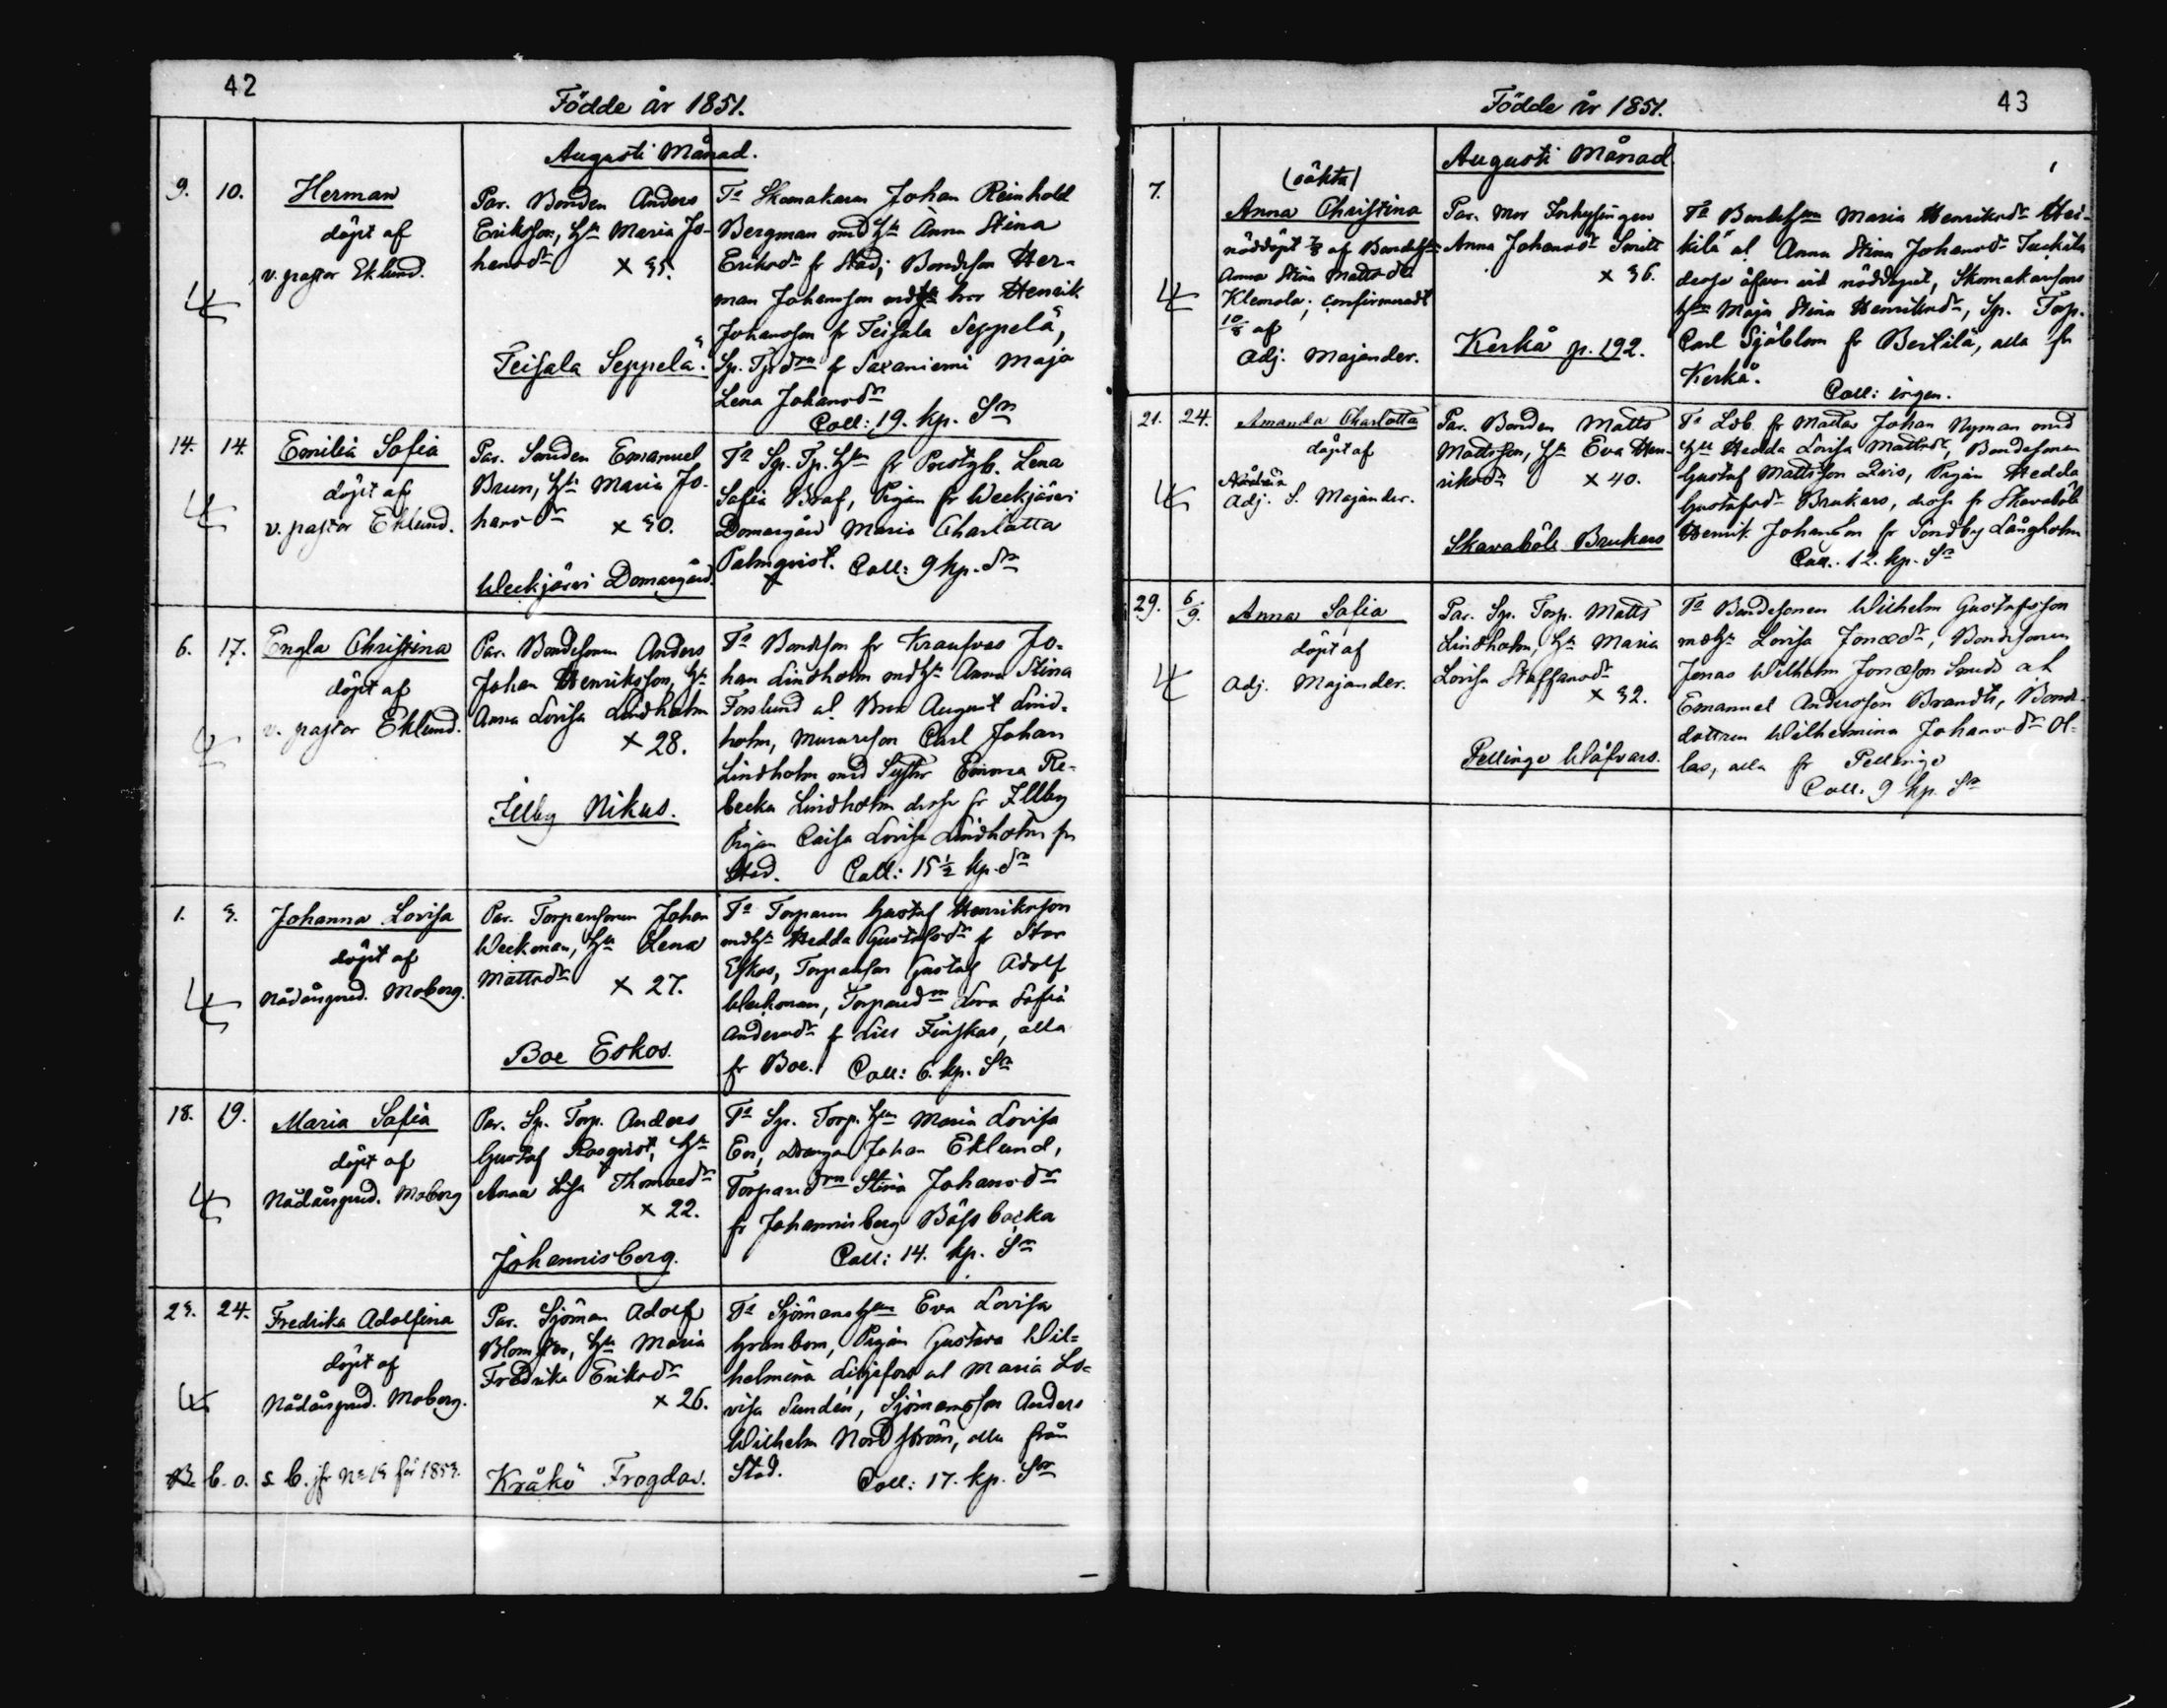 42
Födde år 1851.
Augusti Månad.
9. 10. Herman
döpt af
v. pastor Eklund.
Par. Bonden Anders
Eriksson, h:n Maria Jo-
hansdr
x 35.
Teisala Seppelä.
Fa Skomakaren Johan Reinhold
Bergman med h:n Anna Stina
Eriksdr fr Stad; Bondeson Her-
man Johansson med bror Henrik
Johansson fr Teisala Seppelä,
fr Saxaniemi Maja
Lena Johansdr
Coll: 19. kp. Sr
14. 14. Emilia Sofia
döpt af
v. pastor Eklund.
Par. Smeden Emanuel
Brun, h:n Maria Jo-
hansdr
x 30.
Weckjärvi Domargård
Fa Sp. Tp. h:n fr Prostgb. Lena
Sofia Graf, Pigan fr Weckjärvi
Domargård Maria Charlotta
Palmqvist. Coll: 9 kp. Sr
6. 17. Engla Christina
döpt af
v. pastor Eklund.
Par. Bondesonen Anders
Johan Henriksson, h:n
Anna Lovisa Lindholm
x 28.
Illby Nikus.
Fa Bondeson fr Kraufvas Jo-
han Lindholm med h:n Anna Stina
Forslund al. August Lind-
holm, Murareson Carl Johan
Lindholm med Syster Emma Re-
becka Lindholm desse fr Illby
Pigan Caisa Lovisa Lindholm fr
Stad. Coll: 15 1/2 kp. Sr
1. 3. Johanna Lovisa
döpt af
Nådårspred. Moberg.
Par. Torparsonen Johan
Weckman, h:n Lena
Mattsdr
x 27.
Boe Eskos.
Fa Torparen Gustaf Henriksson
med h:n Hedda Gustafsdr fr Stor
Eskos, Torparson Gustaf Adolf
Weckman, Lena Sofia
Andersdr fr Lill Finskas, alla
fr Boe. Coll: 6. kp. Sr
18. 19. Maria Sofia
döpt af
Nådårspred. Moberg
Par. Sp. Torp. Anders
Gustaf Rosqvist, h:n
Anna Lisa Thomasdr
x 22.
Johannisberg.
Fa Sp. Torp. h:n Maria Lovisa
Ek, Drengen Johan Eklund,
Stina Johansdr
fr Johannisberg Bössbacka
Coll: 14. kp. Sr
23. 24. Fredrika Adolfina
döpt af
Nådårspred. Moberg.
Par. Sjöman Adolf
h:n Maria
Fredrika Eriksdr
x 26.
Kråkö Frogdas.
Fa Sjömansh:n Eva Lovisa
Granbom, Pigan Gustava Wil-
helmina Liljefors al Maria Lo-
visa Sundén, Sjömansson Anders
Wilhelm Nordström, alla från
Stad. Coll: 17. kp. Sr
b. o. s. b. jfr No 13 för 1853.
Födde år 1851.
43
Augusti Månad.
7. (oäkta)
Anna Christina
nöddöpt 7/8 af Bondeh:n
Anna Stina Mattsdr
Klemola; confirmeradt
10/8 af
Adj. Majander.
Par. Mor Inhysingen
Anna Johansdr Smitt
x 36.
Kerkå p. 192.
Fa Bondeh:n Maria Henriksdr Hei-
kilä al Anna Stina Johansdr
desse äfven vid nöddopet, Skomakarsons
h:n Maja Stina Henriksdr, Sp. Torp.
Carl Sjöblom fr Bertilä, alla fr
Kerkå.
Coll: ingen.
21. 24. Amanda Charlotta
döpt af
Adj. S. Majander.
Par. Bonden Matts
Mattsson, h:n Eva Hen-
riksdr
x 40.
Skavaböle Brukars
Fa Ldb. fr Mattas Johan Nyman med
h:n Hedda Lovisa Mattsdr, Bondesonen
Gustaf Mattsson Qvis, Pigan Hedda
Gustafsdr Brukars, desse fr Skavaböle
Henrik Johansson fr Tondby Långholm
Coll: 12. kp. Sr
29. 6/9. Anna Sofia
döpt af
Adj. Majander.
Par. Sp. Torp. Matts
Lindholm, h:n Maria
Lovisa Staffansdr
x 32.
Pellinge Wåfvars.
Fa Bondesonen Wilhelm Gustafsson
med h:n Lovisa Jonasdr, Bondesonen
Jonas Wilhelm Jonasson Smeds al
Emanuel Andersson Brandts, Bond-
dottren Wilhelmina Johansdr Ol-
las, alla fr Pellinge
Coll: 9 kp. Sr